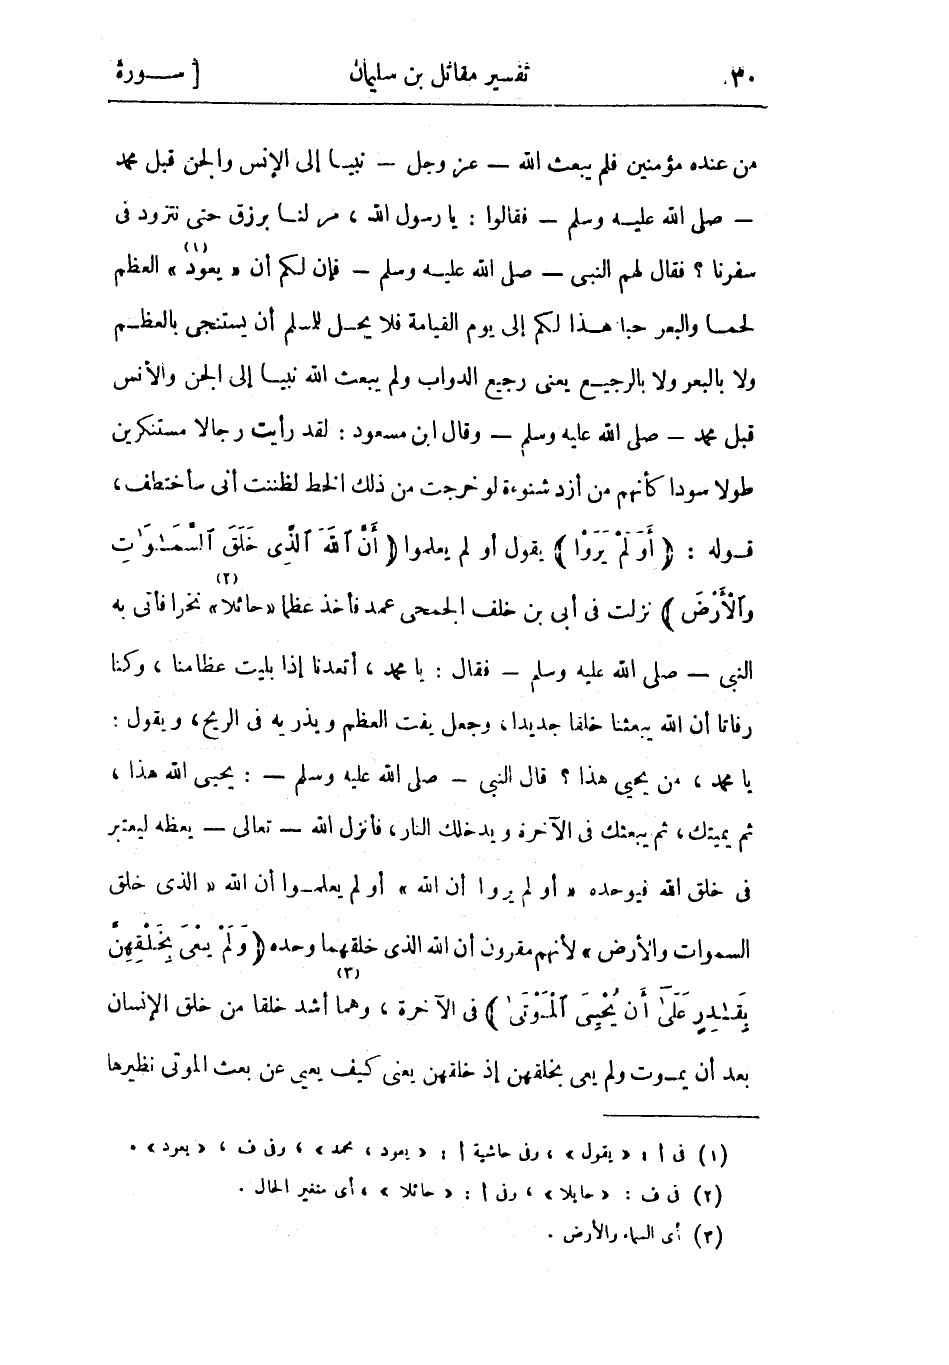 ٣٠ تفسير مقاتل بن سليمان [ ســورة
من عنده مؤمنين فلم يبعث الله — عز وجل — نبيا إلى الإنس والجن قبل محمد
— صلى الله عليه وسلم — فقالوا : يا رسول الله ، مر لنا برزق حتى نتزود فى
سفرنا ؟ فقال لهم النبى — صلى الله عليه وسلم — فإن لكم أن « يعود(١) » العظم
لحما والبعر حبا هذا لكم إلى يوم القيامة فلا يحل للمسلم أن يستنجى بالعظم
ولا بالبعر ولا بالرجيع يعنى رجيع الدواب ولم يبعث الله نبيا إلى الجن والأنس
قبل محمد — صلى الله عليه وسلم — وقال ابن مسعود : لقد رأيت رجالا مستنكرين
طولا سودا كأنهم من أزد شنوءة لو خرجت من ذلك الخط لظننت أنى سأختطف ،
قوله : ﴿ أَوَلَمْ يَرَوْا ﴾ يقول أو لم يعلموا ﴿ أَنَّ ٱللَّهَ ٱلَّذِى خَلَقَ ٱلسَّمَـٰوَٰتِ
وَٱلْأَرْضَ ﴾ نزلت فى أبى بن خلف الجمحى عمد فأخذ عظما « حائلا(٢) » نخرا فأتى به
النبى — صلى الله عليه وسلم — فقال : يا محمد ، أتعدنا إذا بليت عظامنا ، وكنا
رفاتا أن الله يبعثنا خلقا جديدا ، وجعل يفت العظم ويذريه فى الريح ، ويقول :
يا محمد ، من يحيى هذا ؟ قال النبى — صلى الله عليه وسلم — : يحيى الله هذا ،
ثم يميتك ، ثم يبعثك فى الآخرة ويدخلك النار ، فأنزل الله — تعالى — يعظه ليعتبر
فى خلق الله فيوحده « أو لم يروا أن الله » أو لم يعلموا أن الله « الذى خلق
السموات والأرض » لأنهم مقرون أن الله الذى خلقهما وحده ﴿ وَلَمْ يَعْىَ بِخَلْقِهِنَّ
بِقَـٰدِرٍ عَلَىٰٓ أَن يُحْـِۧىَ ٱلْمَوْتَىٰ ﴾ فى الآخرة ، وهما(٣) أشد خلقا من خلق الإنسان
بعد أن يموت ولم يعى بخلقهن إذ خلقهن يعنى كيف يعيى عن بعث الموتى نظيرها
(١) فى أ : « يقول » ، وفى حاشية أ : « يعود ، محمد » ، وفى ف ، « يعود » .
(٢) فى ف : « حايلا » ، وفى أ : « حائلا » ، أى متغير الحال .
(٣) أى السماء والأرض .